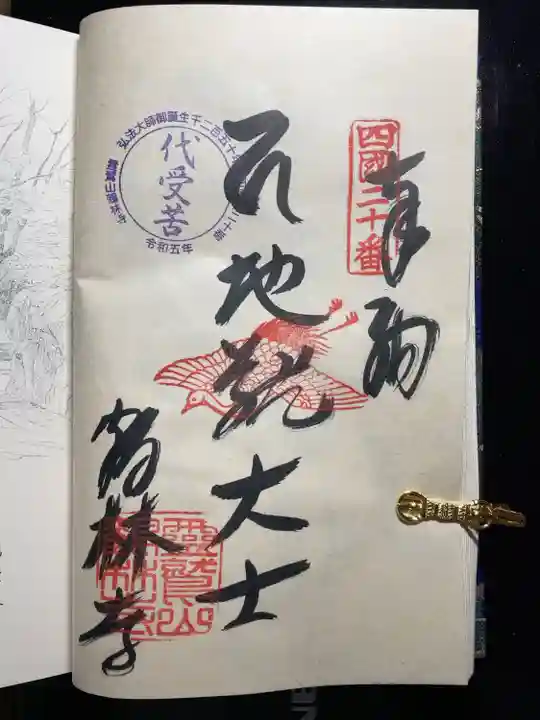 四國二十番
奉納
地蔵大士
鶴林寺
弘法大師御誕生千二百五十年
代受苦
令和五年
靈鷲山